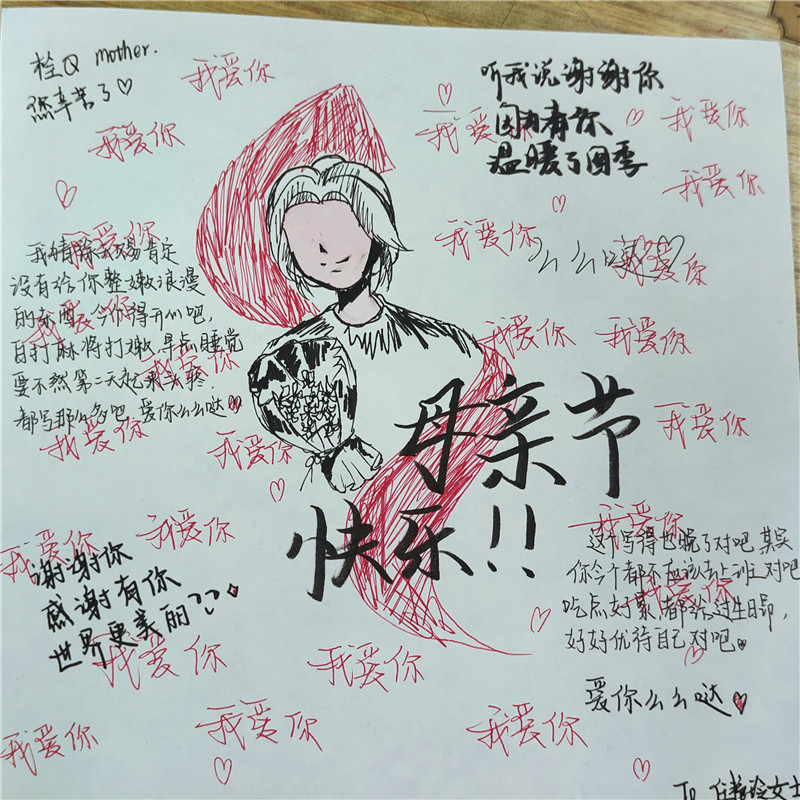 栓Q mother.
您辛苦了♡
听我说谢谢你
因为有你
温暖了四季
我爱你
我爱你
我爱你
我爱你
我爱你
我爱你
我爱你
么么
我爱你
没有给你整嫩浪漫
的东西,今你得开心吧,
白打麻将打嫩,早点睡觉
要不然第二天起来头疼.
都写那么多吧,爱你么么哒
我爱你
我爱你
我爱你
我爱你
我爱你
我爱你
我爱你
母亲节
快乐!!
我爱你
我爱你
我爱你
谢谢你
感谢有你
世界更美丽??
这个写得也晚了对吧 其实
你今个都不应该去上班对吧
吃点好的,都给过生日,
好好优待自己对吧
我爱你
我爱你
我爱你
爱你么么哒
我爱你
我爱你
我爱你
To 女士